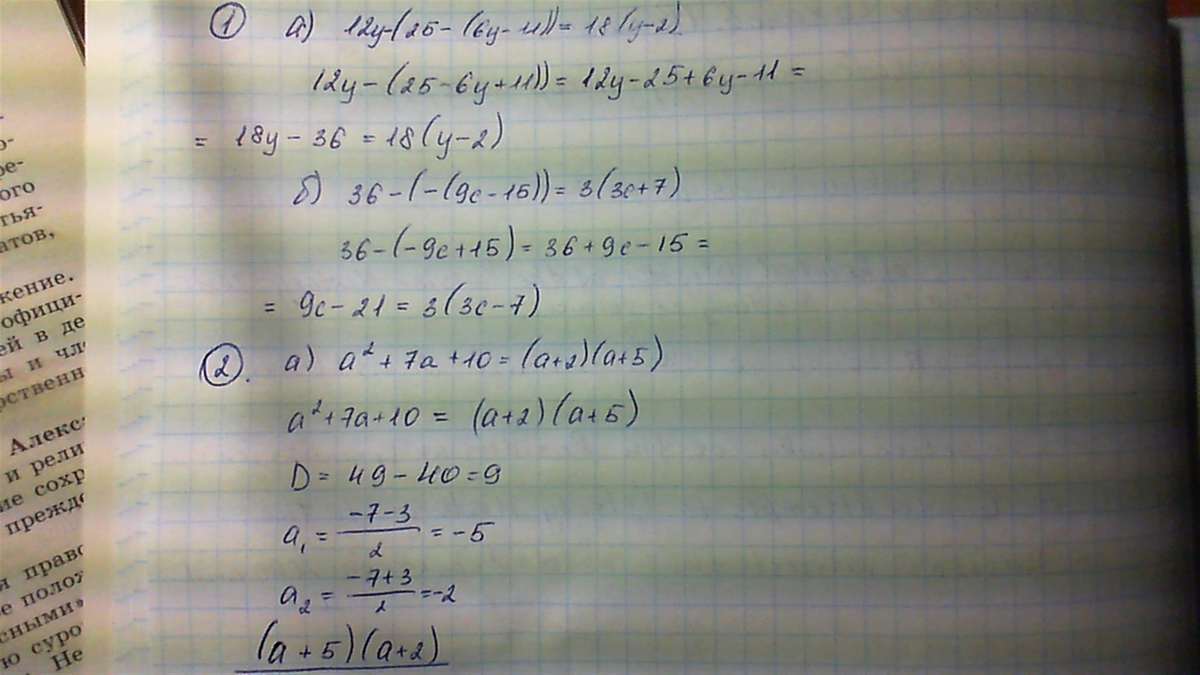 ① а) 12y-(25-(6y-11))=18(y-2).
12y-(25-6y+11))=12y-25+6y-11=
= 18y-36=18(y-2)
б) 36-(-(9c-15))=3(3c+7)
36-(-9c+15)=36+9c-15=
= 9c-21=3(3c-7)
②. а) a²+7a+10=(a+2)(a+5)
a²+7a+10=(a+2)(a+5)
D=49-40=9
a₁=(-7-3)/2=-5
a₂=(-7+3)/2=-2
(a+5)(a+2)
о-
ре-
ого
тья-
атов,
жение.
офици-
ей в де
ы и чл
рственн
Алекс
и рели
ие сохр
прежде
я право
е полож
сными»
ю суро
Не